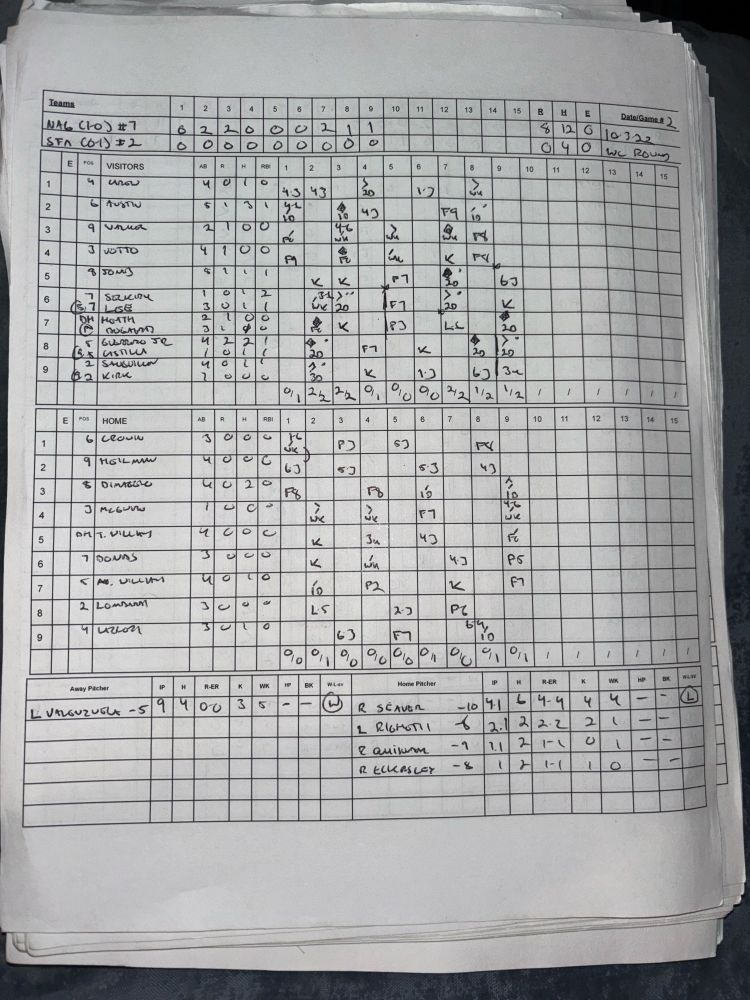 Teams 1 2 3 4 5 6 7 8 9 10 11 12 13 14 15 R H E Date/Game # 2
NAG (1-0) #7 0 2 2 0 0 0 2 1 1 8 12 0 10.3.22
SFA (0-1) #2 0 0 0 0 0 0 0 0 0 0 4 0 WC ROUND
E POS VISITORS AB R H RBI 1 2 3 4 5 6 7 8 9 10 11 12 13 14 15
1 4 4 0 1 0 4.3 43 20 1.3 WK
2 6 AUSTIN 5 1 3 1 10 10 43 F9 10
3 9 2 1 0 0 F6 WK WK WK F8
4 3 VOTTO 4 1 0 0 F9 F6 WK K F8
5 8 JONES 5 1 1 1 K K F7 20 63
6 7 SELKIRK 1 0 1 2 WK 20 F7 20 K
B.7 LEE 3 0 1 1
7 DH HEATH 2 1 0 0 F6 K P3 L6 20
8 5 GUERRERO JR 4 2 2 1 20 F7 K 20 20
B.5 CASTILLA 1 0 1 1
9 2 SANGUILLEN 4 0 1 1 30 K 1.3 63 34
B 2 KIRK 1 0 0 0
0/1 2/2 2/2 0/1 0/0 0/0 2/2 1/2 1/2 / / / / / /
E POS HOME AB R H RBI 1 2 3 4 5 6 7 8 9 10 11 12 13 14 15
1 6 CRONIN 3 0 0 0 WK P3 53 F8
2 9 HEILMAN 4 0 0 0 63 53 5.3 43
3 8 DIMAGGIO 4 0 2 0 F8 F8 10 10
4 3 MCGWIRE 1 0 0 0 WK WK F7 WK
5 DH T. WILLIAMS 4 0 0 0 K 34 43 F6
6 7 BONDS 3 0 0 0 K WK 4.3 P5
7 5 4 0 1 0 10 P2 K F7
8 2 LOMBARDI 3 0 0 0 L5 2.3 P6
9 4 LAZZERI 3 0 1 0 63 F7 10
0/0 0/1 0/0 0/0 0/0 0/1 0/0 0/1 0/1 / / / / / /
Away Pitcher IP H R-ER K WK HP BK W-L-SV Home Pitcher IP H R-ER K WK HP BK W-L-SV
L VALENZUELA -5 9 4 0-0 3 5 - - W R SEAVER -10 4.1 6 4-4 4 4 - - L
L RIGHETTI -6 2.1 2 2-2 2 1 - -
R QUINN -9 1.1 2 1-1 0 1 - -
R ECKERSLEY -8 1 2 1-1 1 0 - -